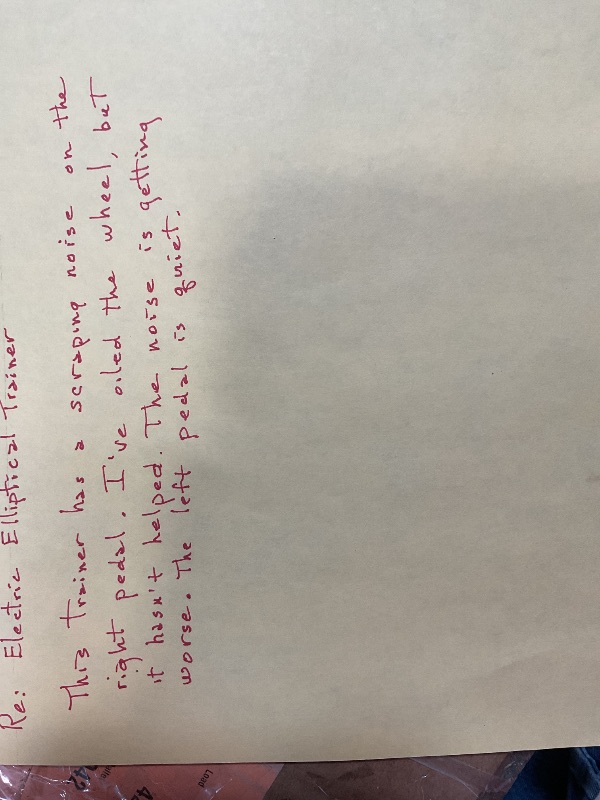 Re: Electric Elliptical Trainer
This trainer has a scraping noise on the
right pedal. I've oiled the wheel, but
it hasn't helped. The noise is getting
worse. The left pedal is quiet.
Load